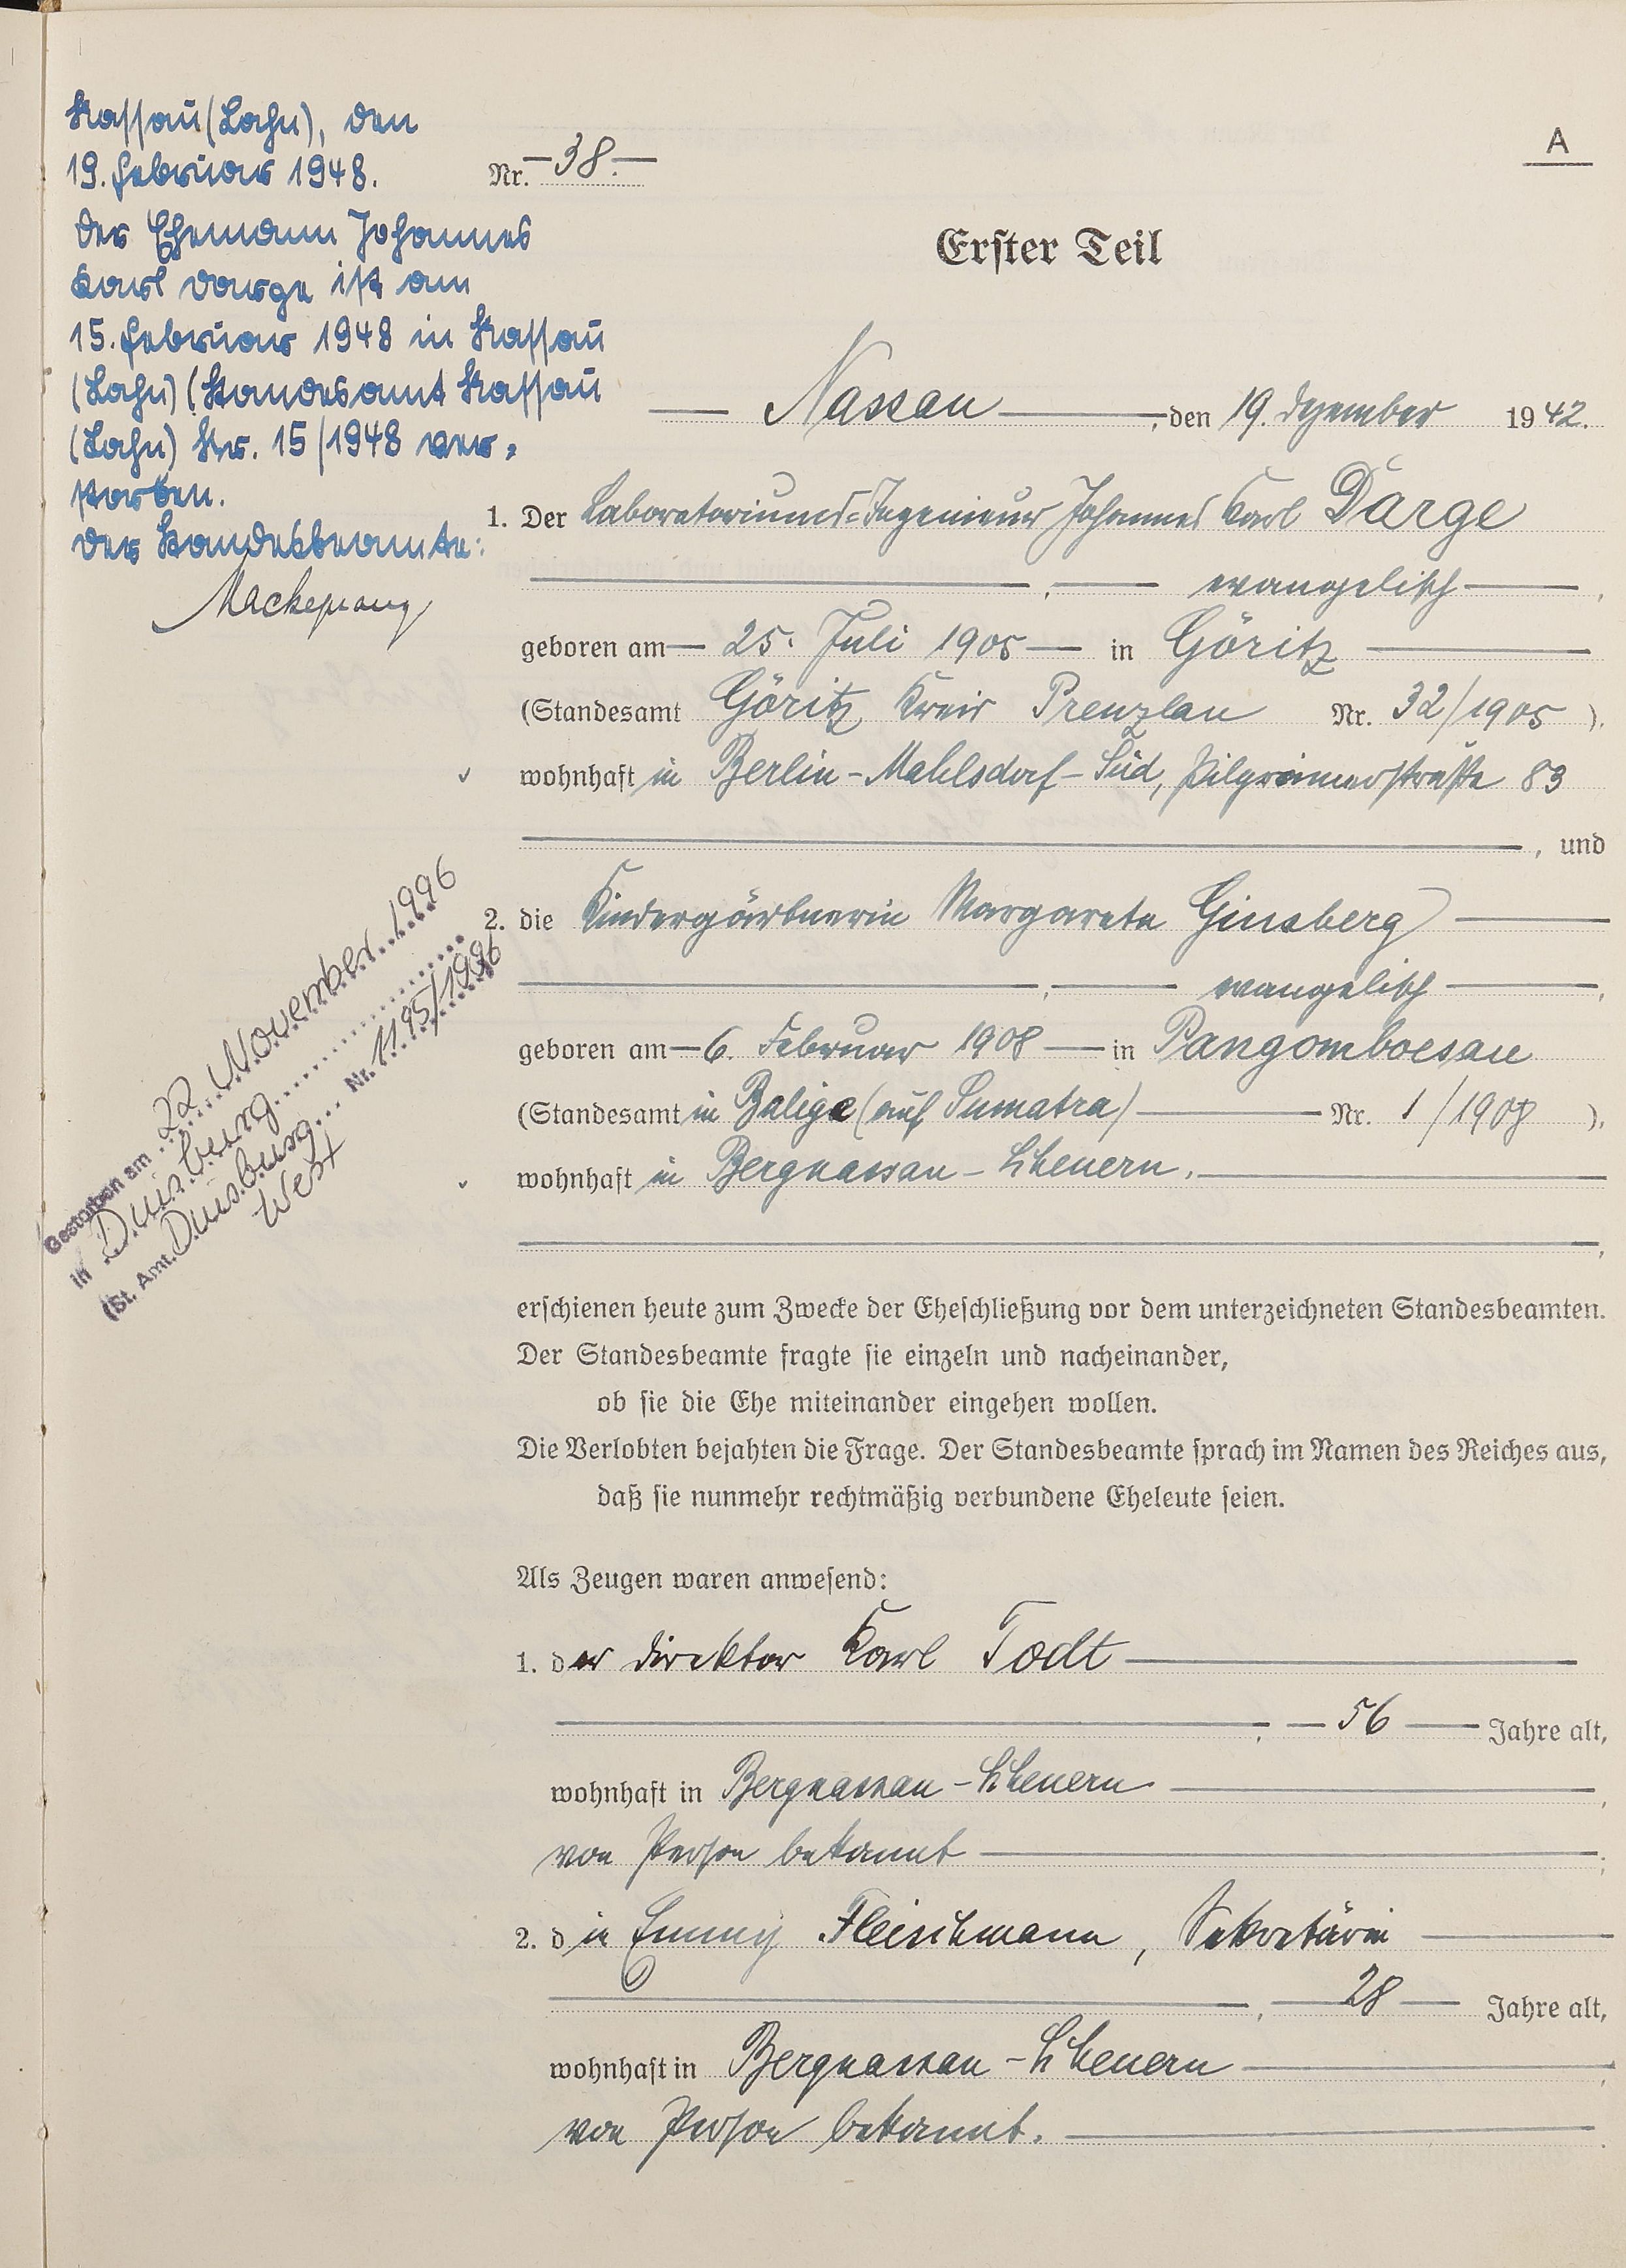 Nassau (Lahn), den
19. Februar 1948.
Der Ehemann Johannes
Karl Darge ist am
15. Februar 1948 in Nassau
(Lahn) (Standesamt Nassau
(Lahn) Nr. 15/1948 ver-
storben.
Der Standesbeamte:
Gestorben am 22. November 1996
in Duisburg
(St. Amt. Duisburg Nr. 1195/1996
West
A
Nr. 38.
Erster Teil
Nassau, den 19. Dezember 1942.
1. Der Laboratoriums-Ingenieur Johannes Karl Darge
, evangelisch,
geboren am 25. Juli 1905 in Göritz
(Standesamt Göritz Kreis Prenzlau Nr. 32/1905).
wohnhaft in Berlin-Mahlsdorf-Süd, Pilgramerstraße 83
, und
2. die Kindergärtnerin Margarete Ginsberg
, evangelisch,
geboren am 6. Februar 1908 in Pangomboesan
(Standesamt in Balige (auf Sumatra) Nr. 1/1908).
wohnhaft in Bergnassau-Scheuern.
erschienen heute zum Zwecke der Eheschließung vor dem unterzeichneten Standesbeamten.
Der Standesbeamte fragte sie einzeln und nacheinander,
ob sie die Ehe miteinander eingehen wollen.
Die Verlobten bejahten die Frage. Der Standesbeamte sprach im Namen des Reiches aus,
daß sie nunmehr rechtmäßig verbundene Eheleute seien.
Als Zeugen waren anwesend:
1. der Direktor Karl Todt
, 56 Jahre alt,
wohnhaft in Bergnassau-Scheuern,
von Person bekannt;
2. die Emmy Fleischmann, Sekretärin
, 28 Jahre alt,
wohnhaft in Bergnassau-Scheuern,
von Person bekannt.